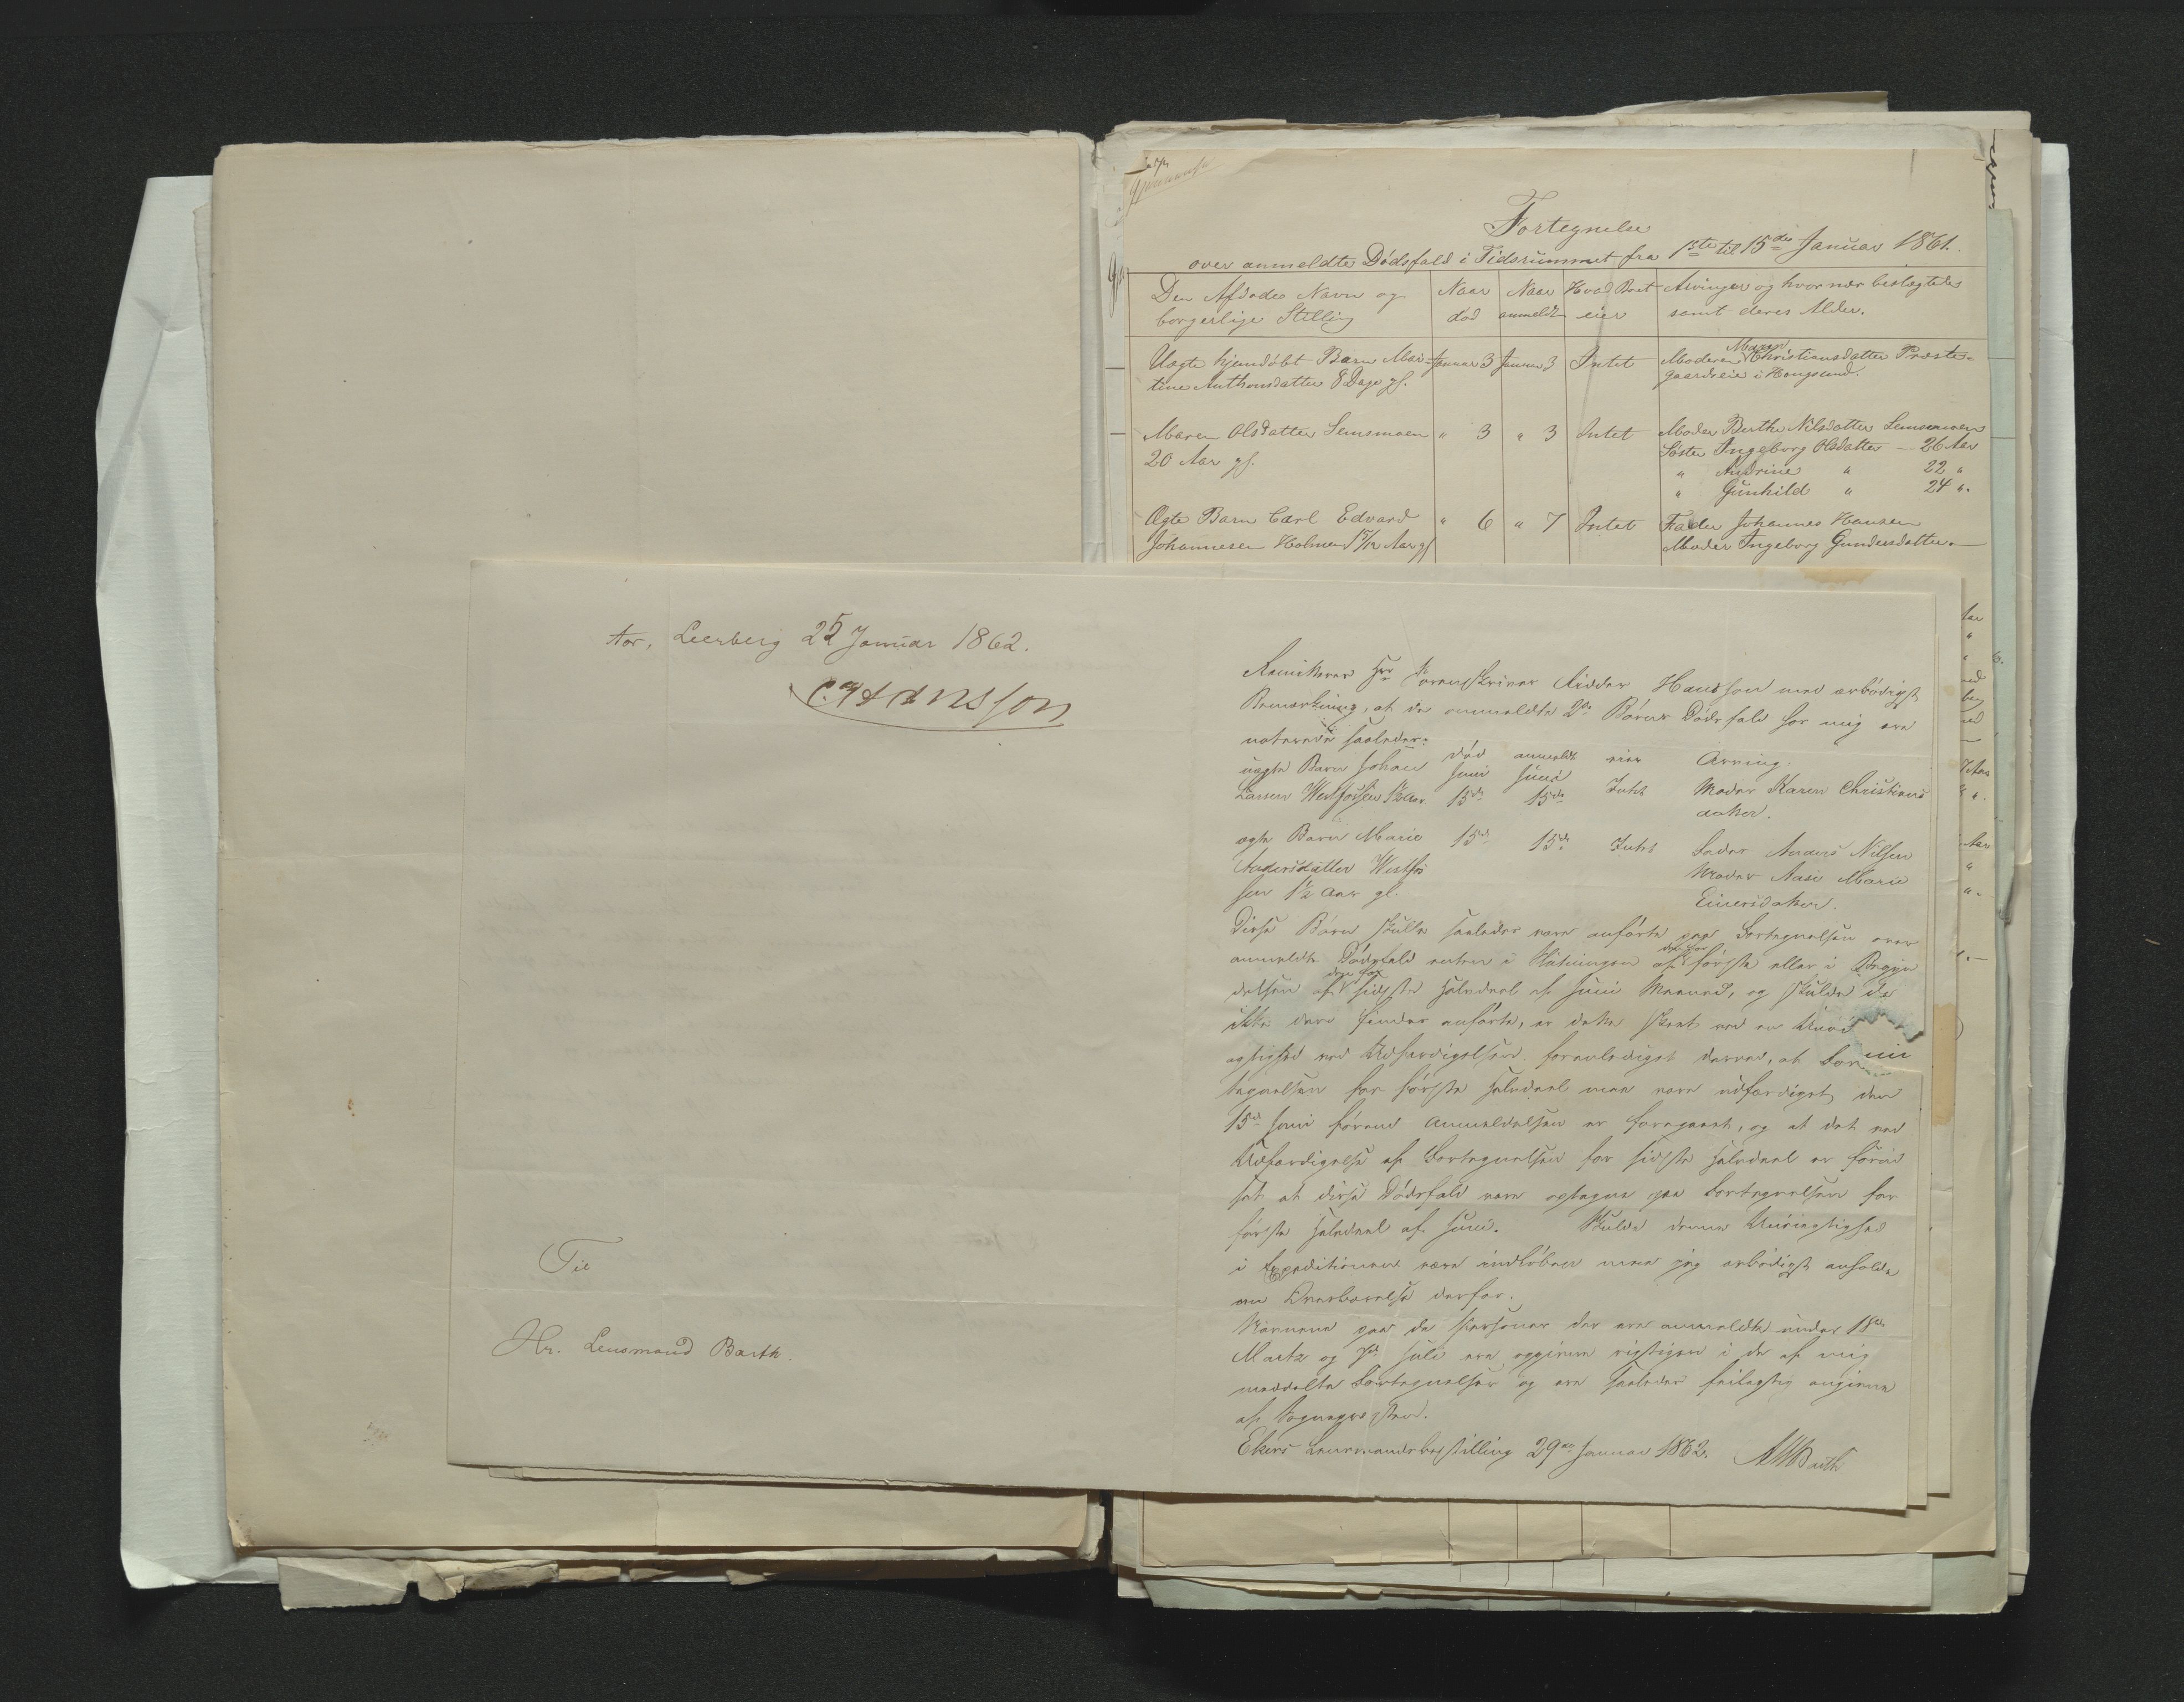 Fortegnelse
over anmeldte Dødsfald i Tidsrummet fra 1ste til 15de Januar 1861.
Den Afdødes Navn og borgerlige Stilling | Naar død | Naar anmeldt | Hvad Boet eier | Arvinger og hvor nær beslægtede samt deres Alder.
Uægte hjemdøbt Barn Mar- | Januar 3 | Januar 3 | Intet | Moderen Maren Christiansdatter Præste-
tine Anthonsdatter 8 Dage gl. | gaardseie i Hougsund.
Maren Olsdatter Semsmoen | " 3 | " 3 | Intet | Moder Berthe Nilsdatter Semsmoen
20 Aar gl. | Søster Ingeborg Olsdatter — 26 Aar
" Andrine " 22 "
" Gunhild " 24 ".
Ægte Barn Carl Edvard | " 6 | " 7 | Intet | Fader Johannes Hansen
Johannesen Holmen 1 5/12 Aar gl | Moder Ingeborg Gundersdatter.
Aar, Leerberg 25 Januar 1862.
C. Hansson
Til
Hr. Lensmand Barth.
Remitteres Hrr Sorenskriver Ridder Hansson med ærbødigst
Bemærkning, at de anmeldte 2de Børns Dødsfald hos mig ere
noterede saaledes:
død anmeldt eier Arving.
uægte Barn Johan Juni Juni
Larsen Westfossen 1½ Aar 15de 15de Intet Moder Karen Christians
datter.
ægte Barn Marie 15de 15de Intet Fader Anders Nilsen
Andersdatter Westfos Moder Aase Marie
sen 1½ Aar gl. Einersdatter.
Disse Børn skulle saaledes være anførte paa Fortegnelsen over
anmeldte Dødsfald enten i Slutningen af den for første eller i Begyn
delsen af den for sidste Halvdeel af Juni Maaned, og skulde de
ikke der findes anførte, er dette skeet ved en Unøi
agtighed ved Udfærdigelsen foranlediget derved, at For
tegnelsen for første Halvdeel maa være udfærdiget den
15de Juni førend Anmeldelsen er foregaaet, og at det ved
Udfærdigelse af Fortegnelsen for sidste Halvdeel er forud
sat at disse Dødsfald vare optagne paa Fortegnelsen for
første Halvdeel af Juni. Skulde denne Unøiagtighed
i Expeditionen være indløben maa jeg ærbødigst anholde
om Overbærelse derfor.
Navnene paa de Personer der ere anmeldte under 15de
Marts og 7de Juli ere opgivne rigtigen i de af mig
meddelte Fortegnelser og ere saaledes feilagtig angivne
af Sognepresten.
Ekers Lensmandsbestilling 29de Januar 1862. AMBarth